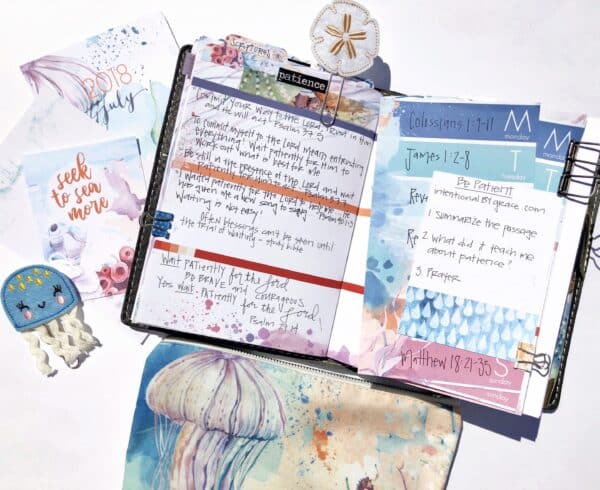 2018
July
seek
to sea
more
SCRIPTURES
patience
Commit your way to the Lord, Trust in Him
and He will act. Psalm 37:5
To commit myself to the Lord means entrusting
everything! Wait patiently for Him to
work out what is best for me
Be still in the presence of the Lord and wait
patiently
I waited patiently for the Lord to help me - He
has given me a new song to sing. Psalm 40:1-3
Waiting is not easy!
Often blessings can't be seen until
the trial of waiting - study bible
Wait patiently for the Lord
Be brave and courageous
Yes wait, patiently
for the Lord.
Psalm 27:14
Colossians 1:9-11
M
monday
James 1:2-8
T
Be Patient
intentionalBYgrace.com
1. Summarize the passage
2. What did it teach me
about patience?
3. Prayer
Reve
Re
Matthew 18:21-35
S
sunday
sunday